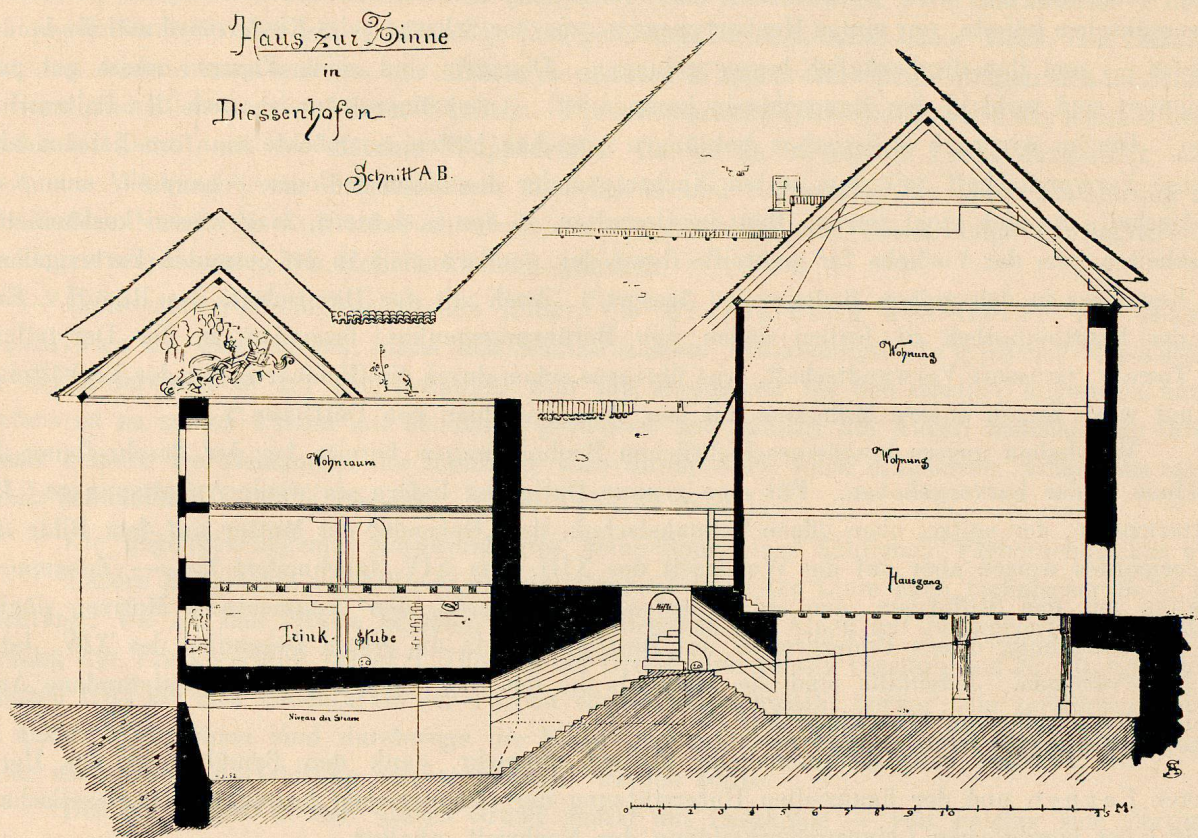 Haus zur Zinne
in
Diessenhofen
Schnitt A B.
Wohnung
Wohnraum
Wohnung
Hausgang
Trink-stube
Niveau der Strasse
0 1 2 3 4 5 6 7 8 9 10 15 M.